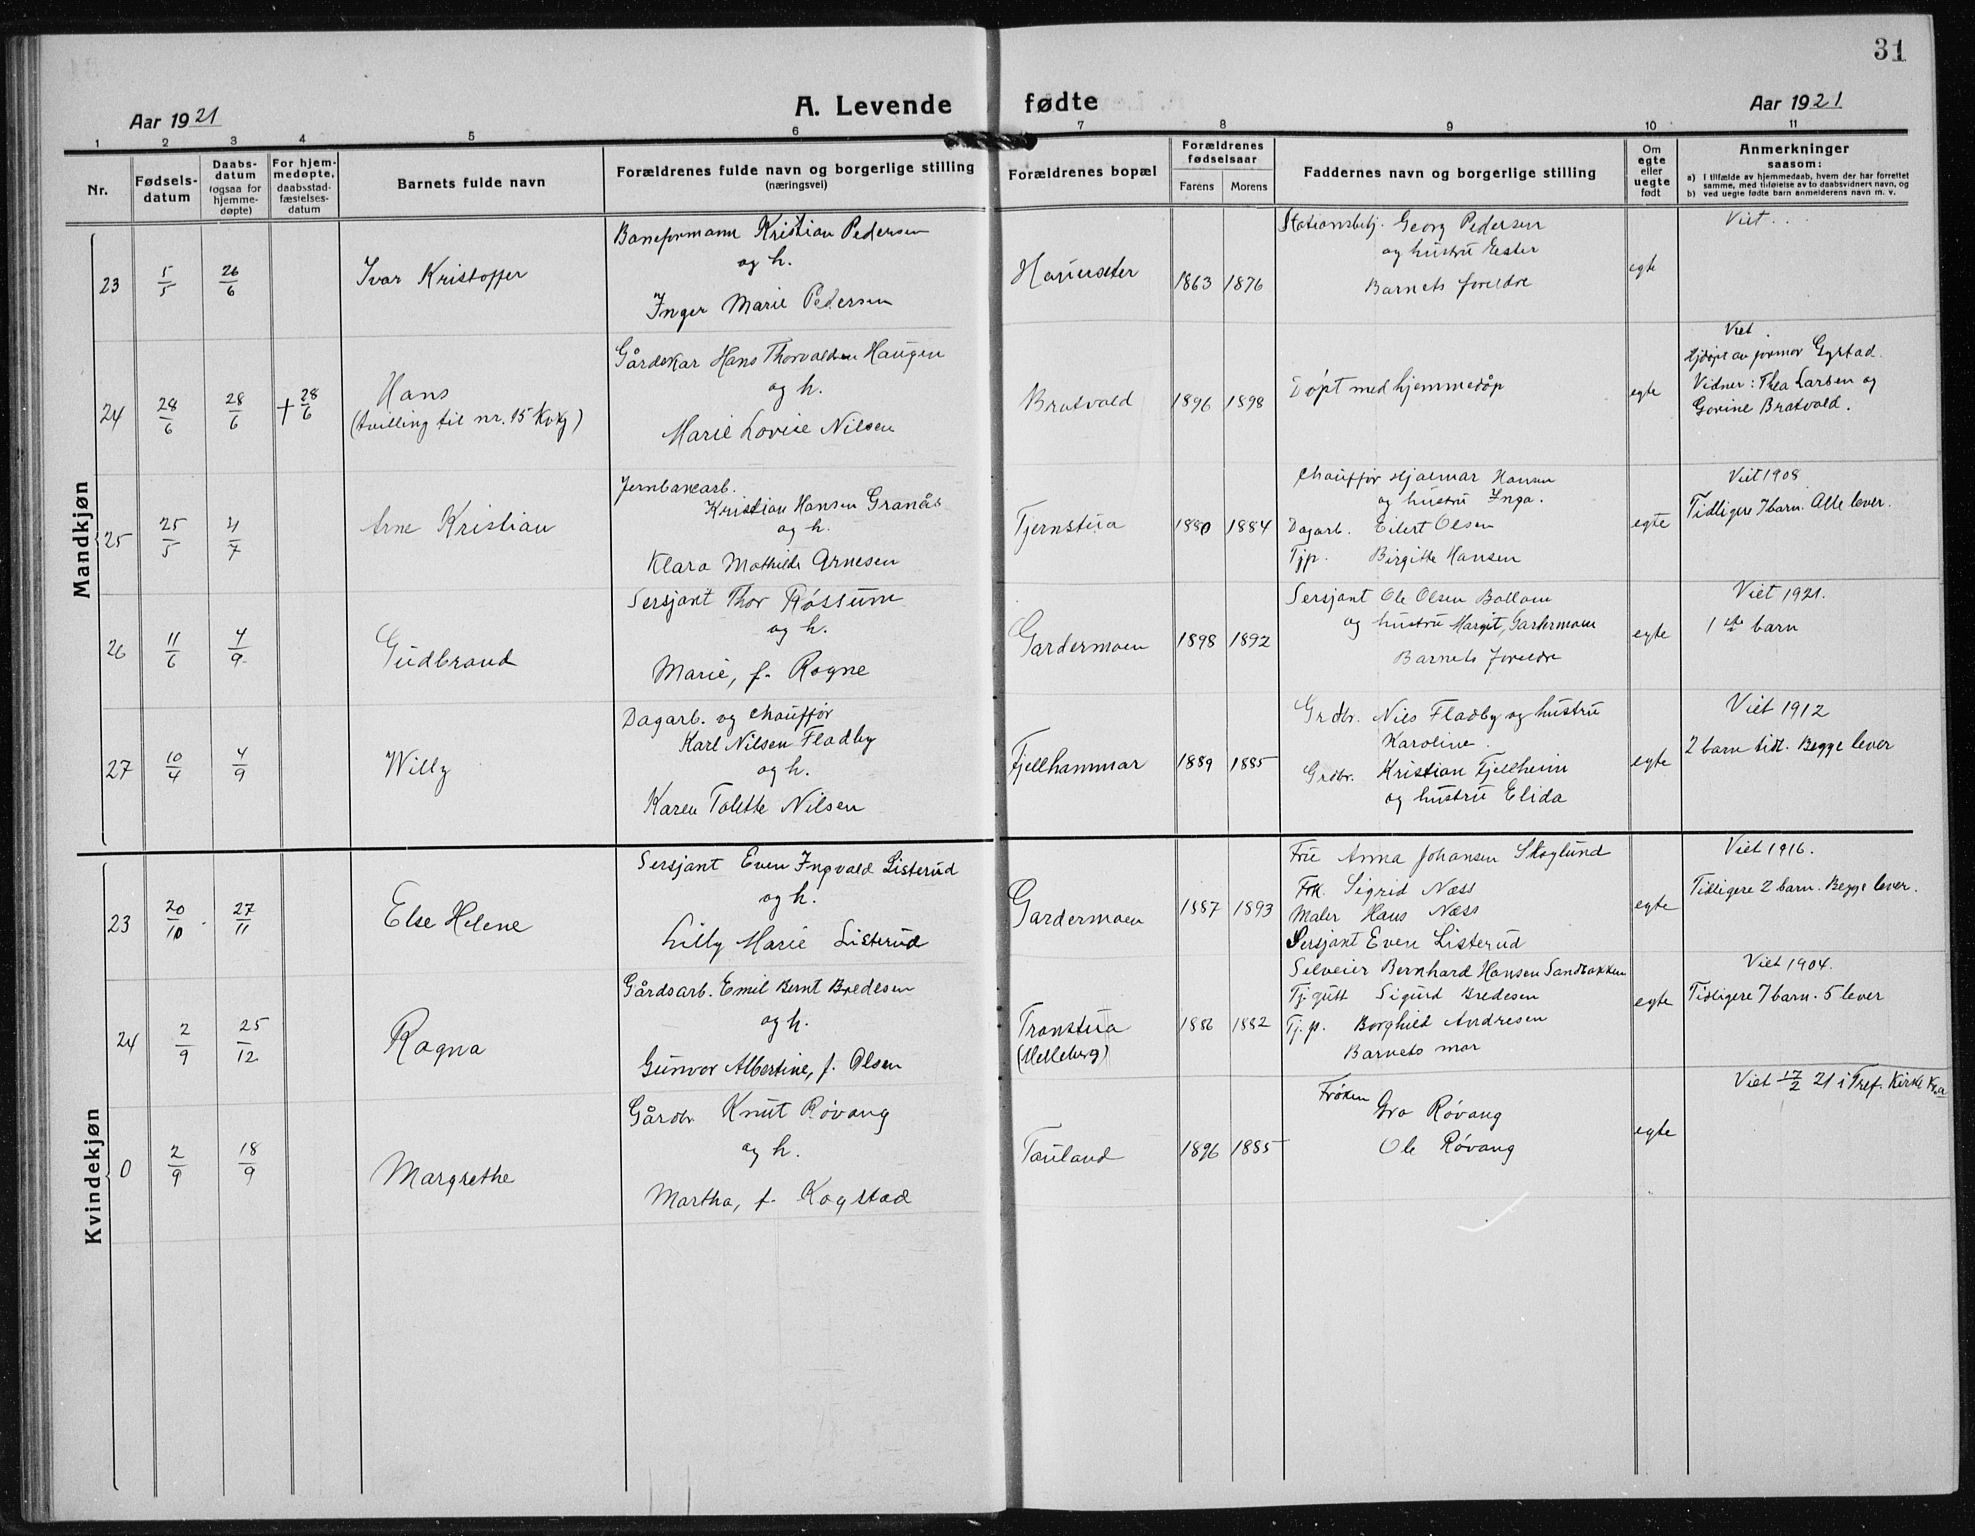 31
Aar 1921
A. Levende fødte
Aar 1921
1 2 3 4 5 6 7 8 9 10 11
Nr.
Fødsels-
datum
Daabs-
datum
(ogsaa for
hjemme-
døpte)
For hjem-
medøpte,
daabsstad-
fæstelses-
datum
Barnets fulde navn
Forældrenes fulde navn og borgerlige stilling
(næringsvei)
Forældrenes bopæl
Forældrenes
fødselsaar
Farens Morens
Faddernes navn og borgerlige stilling
Om
egte
eller
uegte
født
Anmerkninger
saasom:
a) I tilfælde av hjemmedaab, hvem der har forrettet
samme, med tilføielse av to daabsvidners navn, og
b) ved uegte fødte barn anmelderens navn m. v.
Mandkjøn
23 5/5 26/6
Ivar Kristoffer
Baneformann Kristian Pedersen
og h.
Inger Marie Pedersen
1863 1876
Stationsbetj. Georg Pedersen
og hustru Ester
Barnets foreldre
egte
Viet.
24 28/6 28/6 + 28/6
Hans
(tvilling til nr. 15 Kvkj)
Gårdskar Hans Thorvaldsen Haugen
og h.
Marie Lovise Nilsen
Bratvold
1896 1898
Døpt med hjemmedåp
egte
Viet.
Hjdøpt av jormor Gystad.
Vidner: Thea Larsen og
Govine Bratvold.
25 25/5 4/7
Arne Kristian
Jernbanearb.
Kristian Hansen Granås
og h.
Klara Mathilde Arnesen
Tjernstua
1880 1884
Chauffør Hjalmar Hansen
og hustru Inga.
Dagarb. Eilert Olsen
Tjp. Birgitte Hansen
egte
Viet 1908
Tidligere 7 barn. Alle lever.
26 11/6 4/9
Gudbrand
Sersjant Thor Røssum
og h.
Marie, f. Rogne
Gardermoen
1898 1892
Sersjant Ole Olsen
og hustru Margit, Gardermoen
Barnets foreldre
egte
Viet 1921.
1ste barn
27 10/4 4/9
Willy
Dagarb. og chauffør
Karl Nilsen Fladby
og h.
Karen Tolette Nilsen
Fjellhammar
1889 1885
Grdbr. Nils Fladby og hustru
Karoline.
Grdbr. Kristian Fjellheim
og hustru Elida
egte
Viet 1912
2 barn tidl. Begge lever
Kvindekjøn
23 20/10 27/11
Else Helene
Sersjant Even Ingvald Listerud
og h.
Lilly Marie Listerud
Gardermoen
1887 1893
Fru Anna Johansen Skoglund
Frk. Sigrid Næss
Maler Hans Næss
Sersjant Even Listerud
egte
Viet 1916.
Tidligere 2 barn. Begge lever.
24 2/9 25/12
Ragna
Gårdsarb. Emil Bernt Bredesen
og h.
Gunvor Albertine, f. Olsen
Transtua
1886 1882
Selveier Bernhard Hansen Sandbakken
Tj.gutt Sigurd Bredesen
Tj.p. Borghild Andresen
Barnets mor
egte
Viet 1904.
Tidligere 7 barn. 5 lever
0 2/9 18/9
Margrethe
Gårdbr. Knut Røvang
og h.
Martha, f. Kogstad
Tauland
1896 1885
Frøken
Gro Røvang
Ole Røvang
egte
Viet 17/2 21 i Tref. Kirke Kr.a